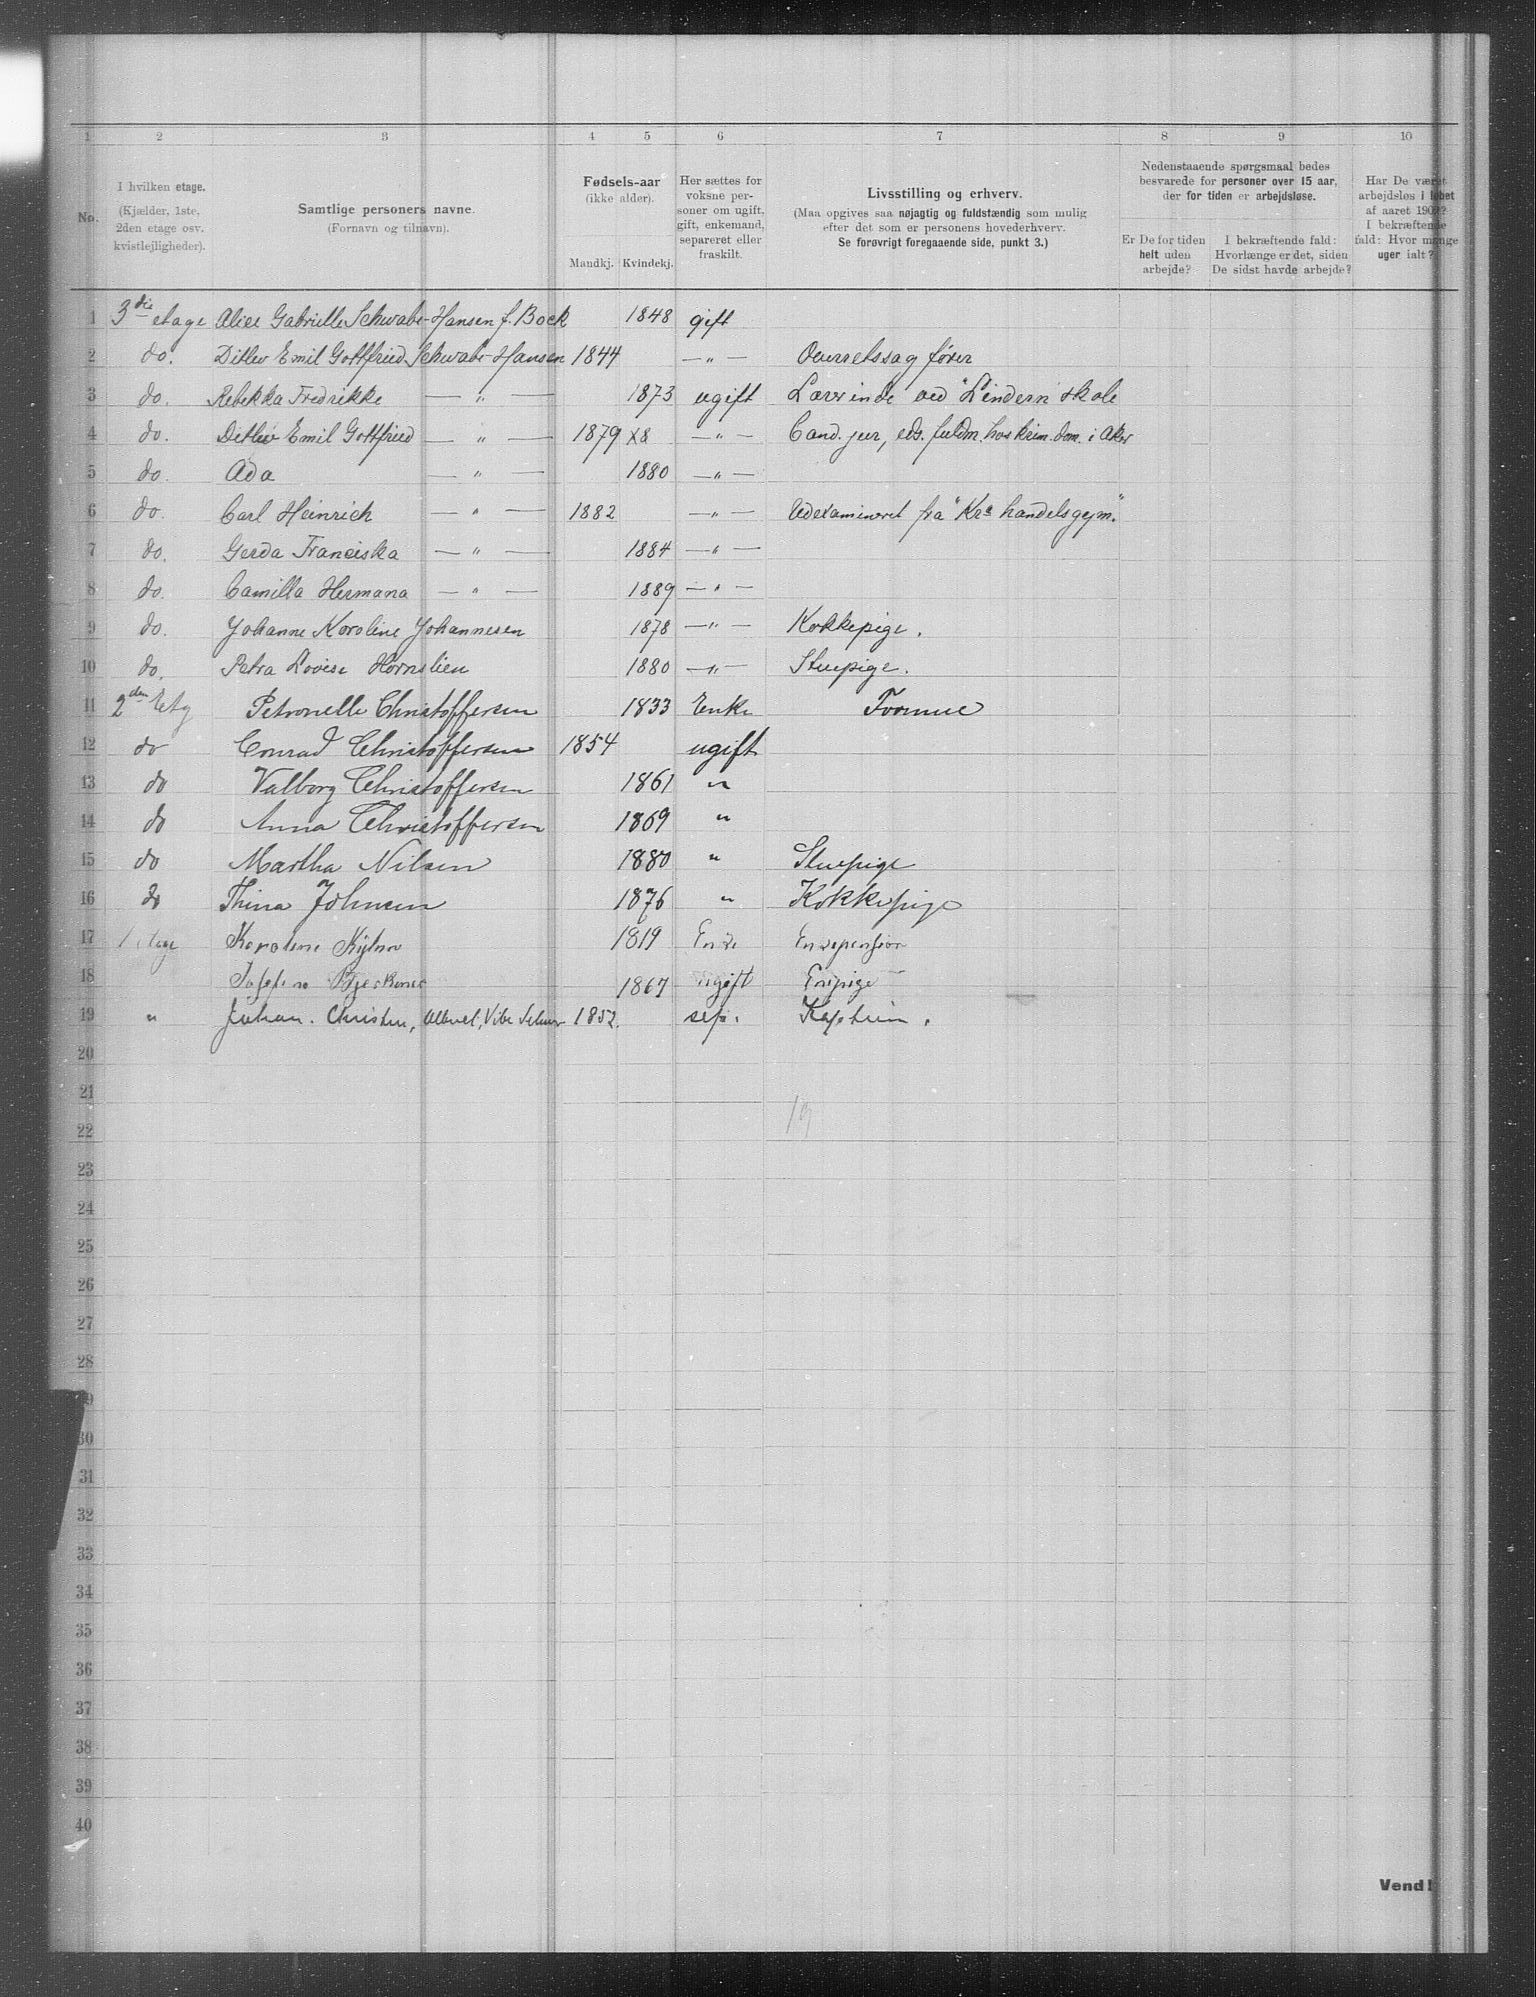 1 2 3 4 5 6 7 8 9 10
No.
I hvilken etage.
(Kjælder, 1ste,
2den etage osv.
kvistlejligheder).
Samtlige personers navne.
(Fornavn og tilnavn).
Fødsels-aar
(ikke alder).
Mandkj. Kvindekj.
Her sættes for
voksne per-
soner om ugift,
gift, enkemand,
separeret eller
fraskilt.
Livsstilling og erhverv.
(Maa opgives saa nøjagtig og fuldstændig som mulig
efter det som er personens hovederhverv.
Se forøvrigt foregaaende side, punkt 3.)
Nedenstaaende spørgsmaal bedes
besvarede for personer over 15 aar,
der for tiden er arbejdsløse.
Er De for tiden
helt uden
arbejde?
I bekræftende fald:
Hvorlænge er det, siden
De sidst havde arbejde?
Har De været
arbejdsløs i løbet
af aaret 1902?
I bekræftende
fald: Hvor mange
uger ialt?
1 3die etage Alice Gabrielle Schwabe-Hansen f. Bock 1848 gift
2 do. Ditlev Emil Gottfried Schwabe-Hansen 1844 — „ — Overretssagfører
3 do. Rebekka Fredrikke — „ — 1873 ugift Lærerinde ved "Lindern" skole
4 do. Ditlev Emil Gottfried — „ — 1879 X8 — „ — Cand. jur, eds. fuldm. hos krim. dom. i Aker
5 do. Ada — „ — 1880 — „ —
6 do. Carl Heinrich — „ — 1882 — „ — Udexamineret fra "Kra handelsgym."
7 do. Gerda Franciska — „ — 1884 — „ —
8 do. Camilla Hermana — „ — 1889 — „ —
9 do. Johanne Karoline Johannesen 1878 — „ — Kokkepige.
10 do. Petra Lovise Hornslien 1880 — „ — Stuepige.
11 2den Etg Petronelle Christoffersen 1833 Enke Formue
12 do Conrad Christoffersen 1854 ugift
13 do Valborg Christoffersen 1861 "
14 do Anna Christoffersen 1869 "
15 do Martha Nilsen 1880 " Stuepige
16 do Thina Johnsen 1876 " Kokkepige
17 1 etage Karoline 1819 Enke Enkepension
18 1867 ugift Enepige
19 " Johan. Christian, 1852. sep. Kaptein.
20
21
22
19
23
24
25
26
27
28
29
30
31
32
33
34
35
36
37
38
39
40
Vend!